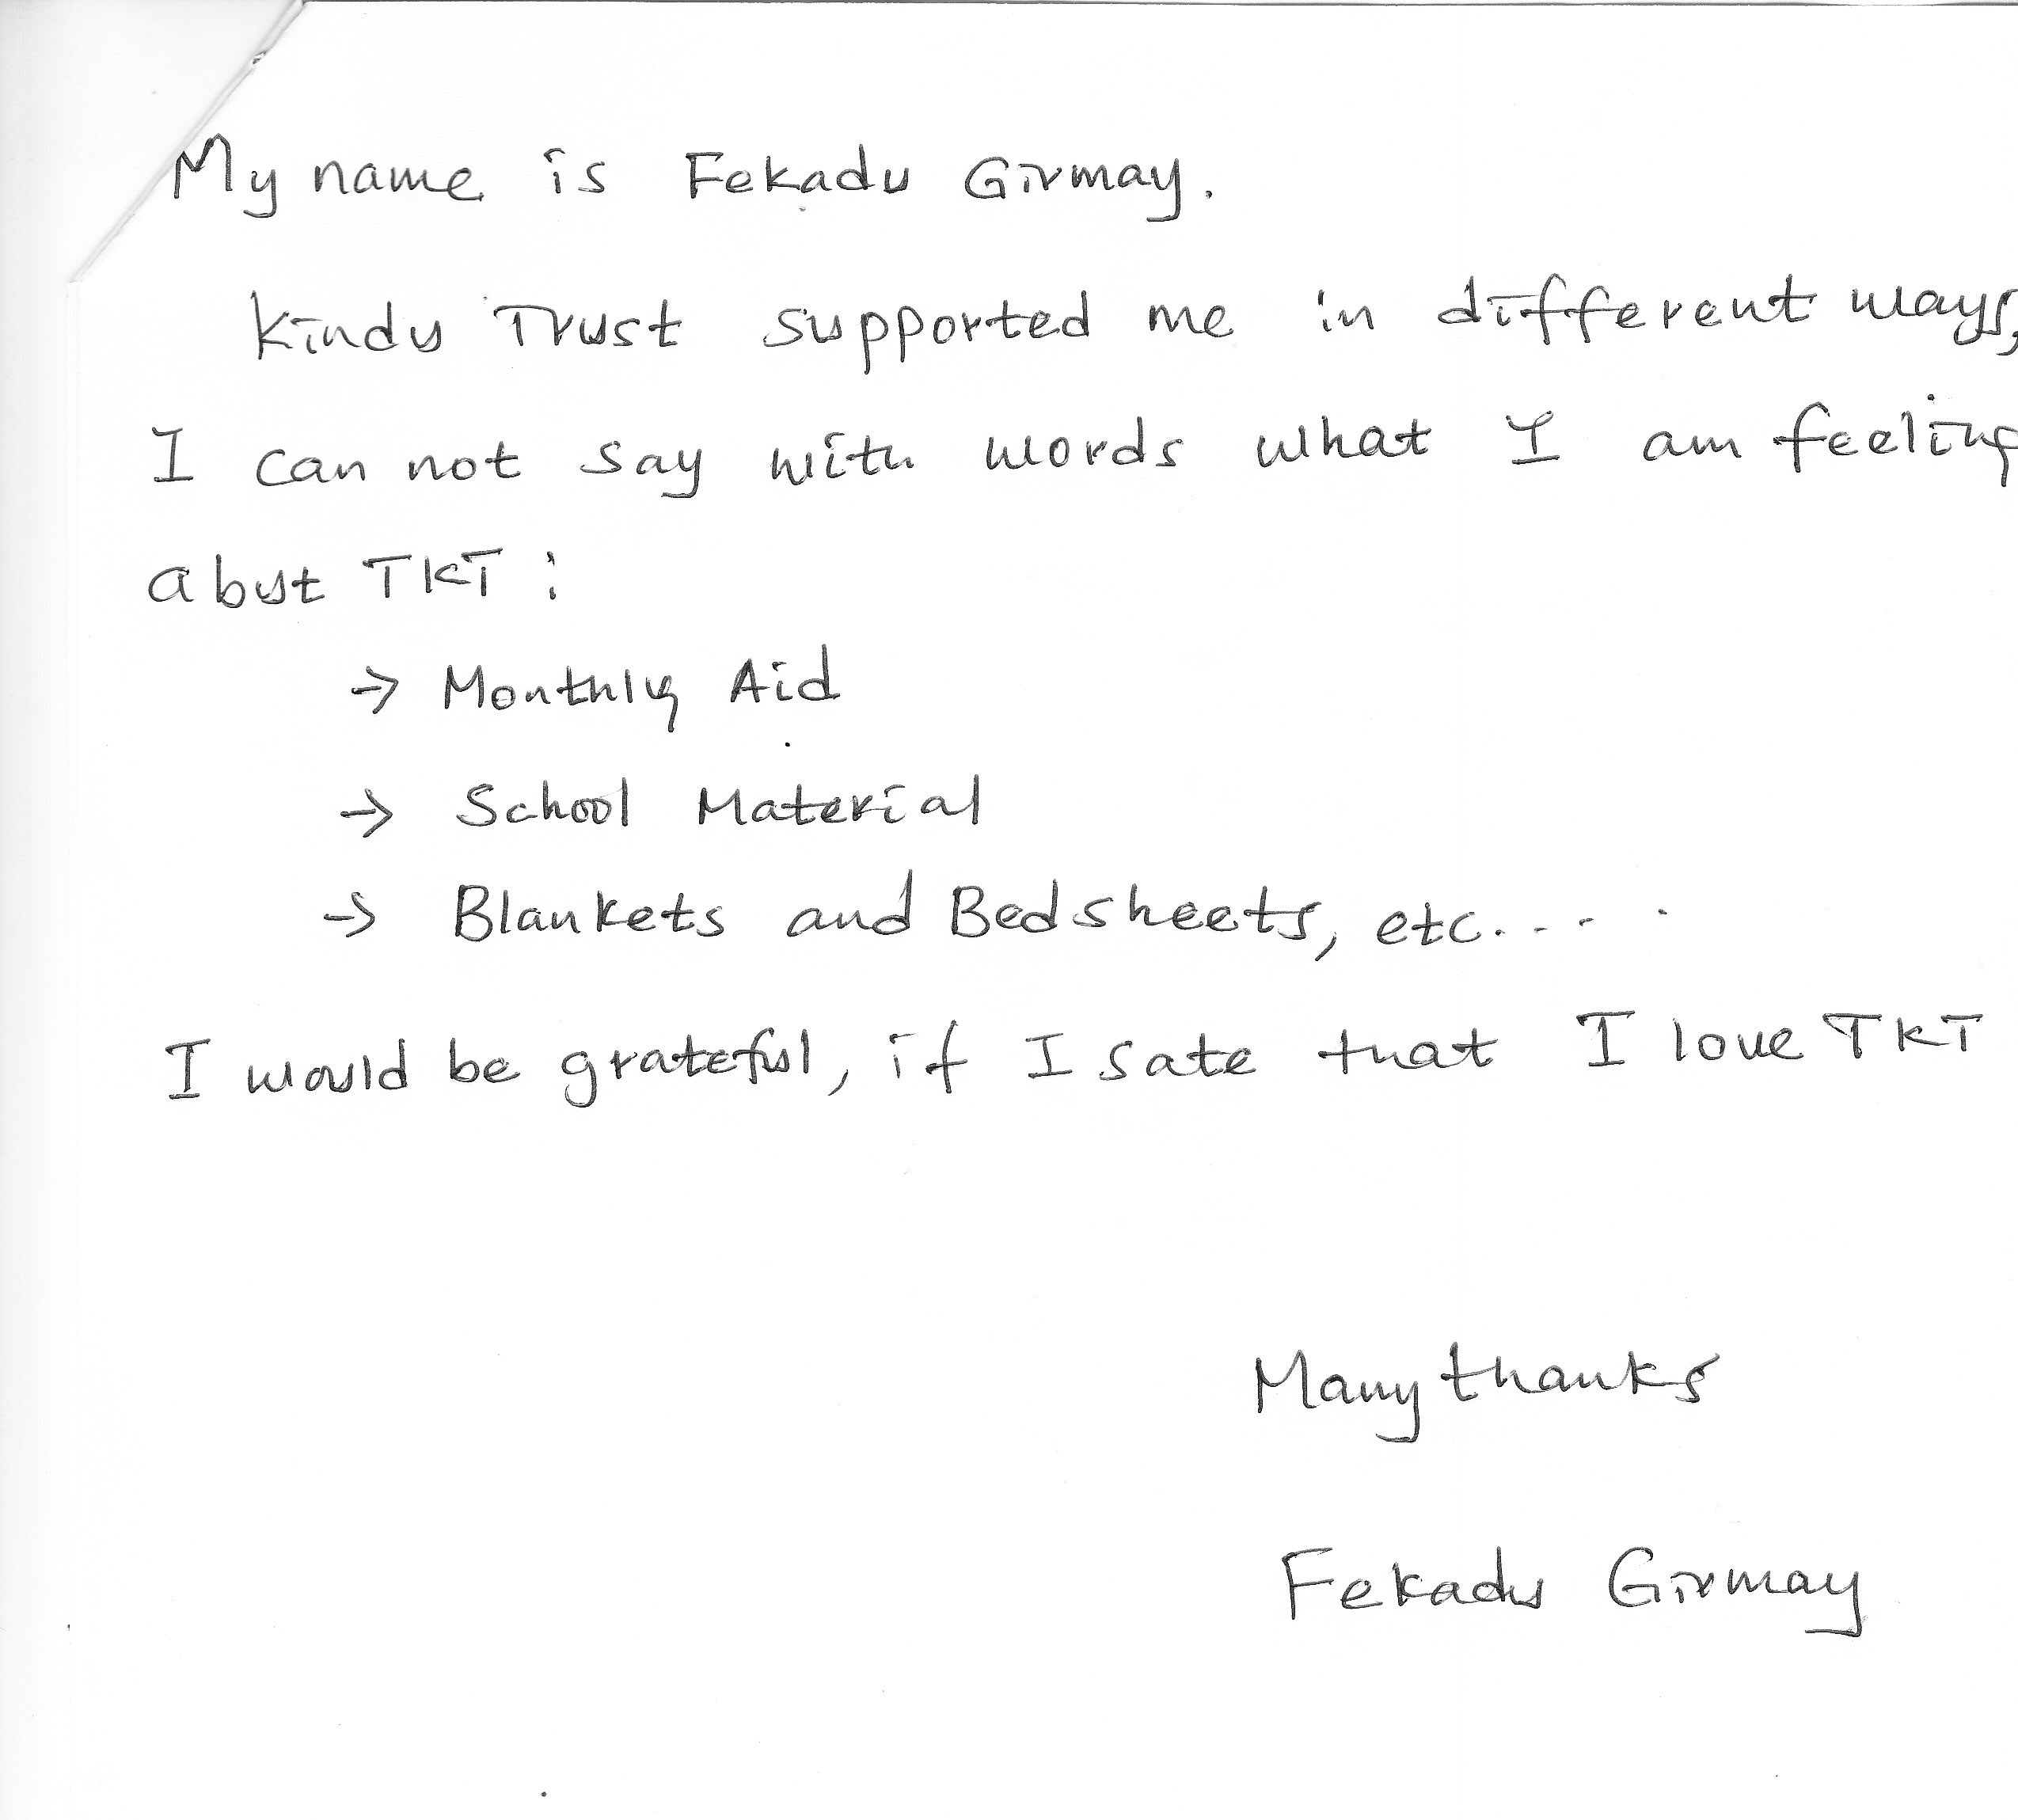 My name is Fekadu Girmay.
Kindu Trust supported me in different ways,
I can not say with words what I am feeling
abut TKT :
→ Monthly Aid
→ School Material
→ Blankets and Bedsheets, etc....
I would be grateful, if I sate that I love TKT
Many thanks
Fekadu Girmay